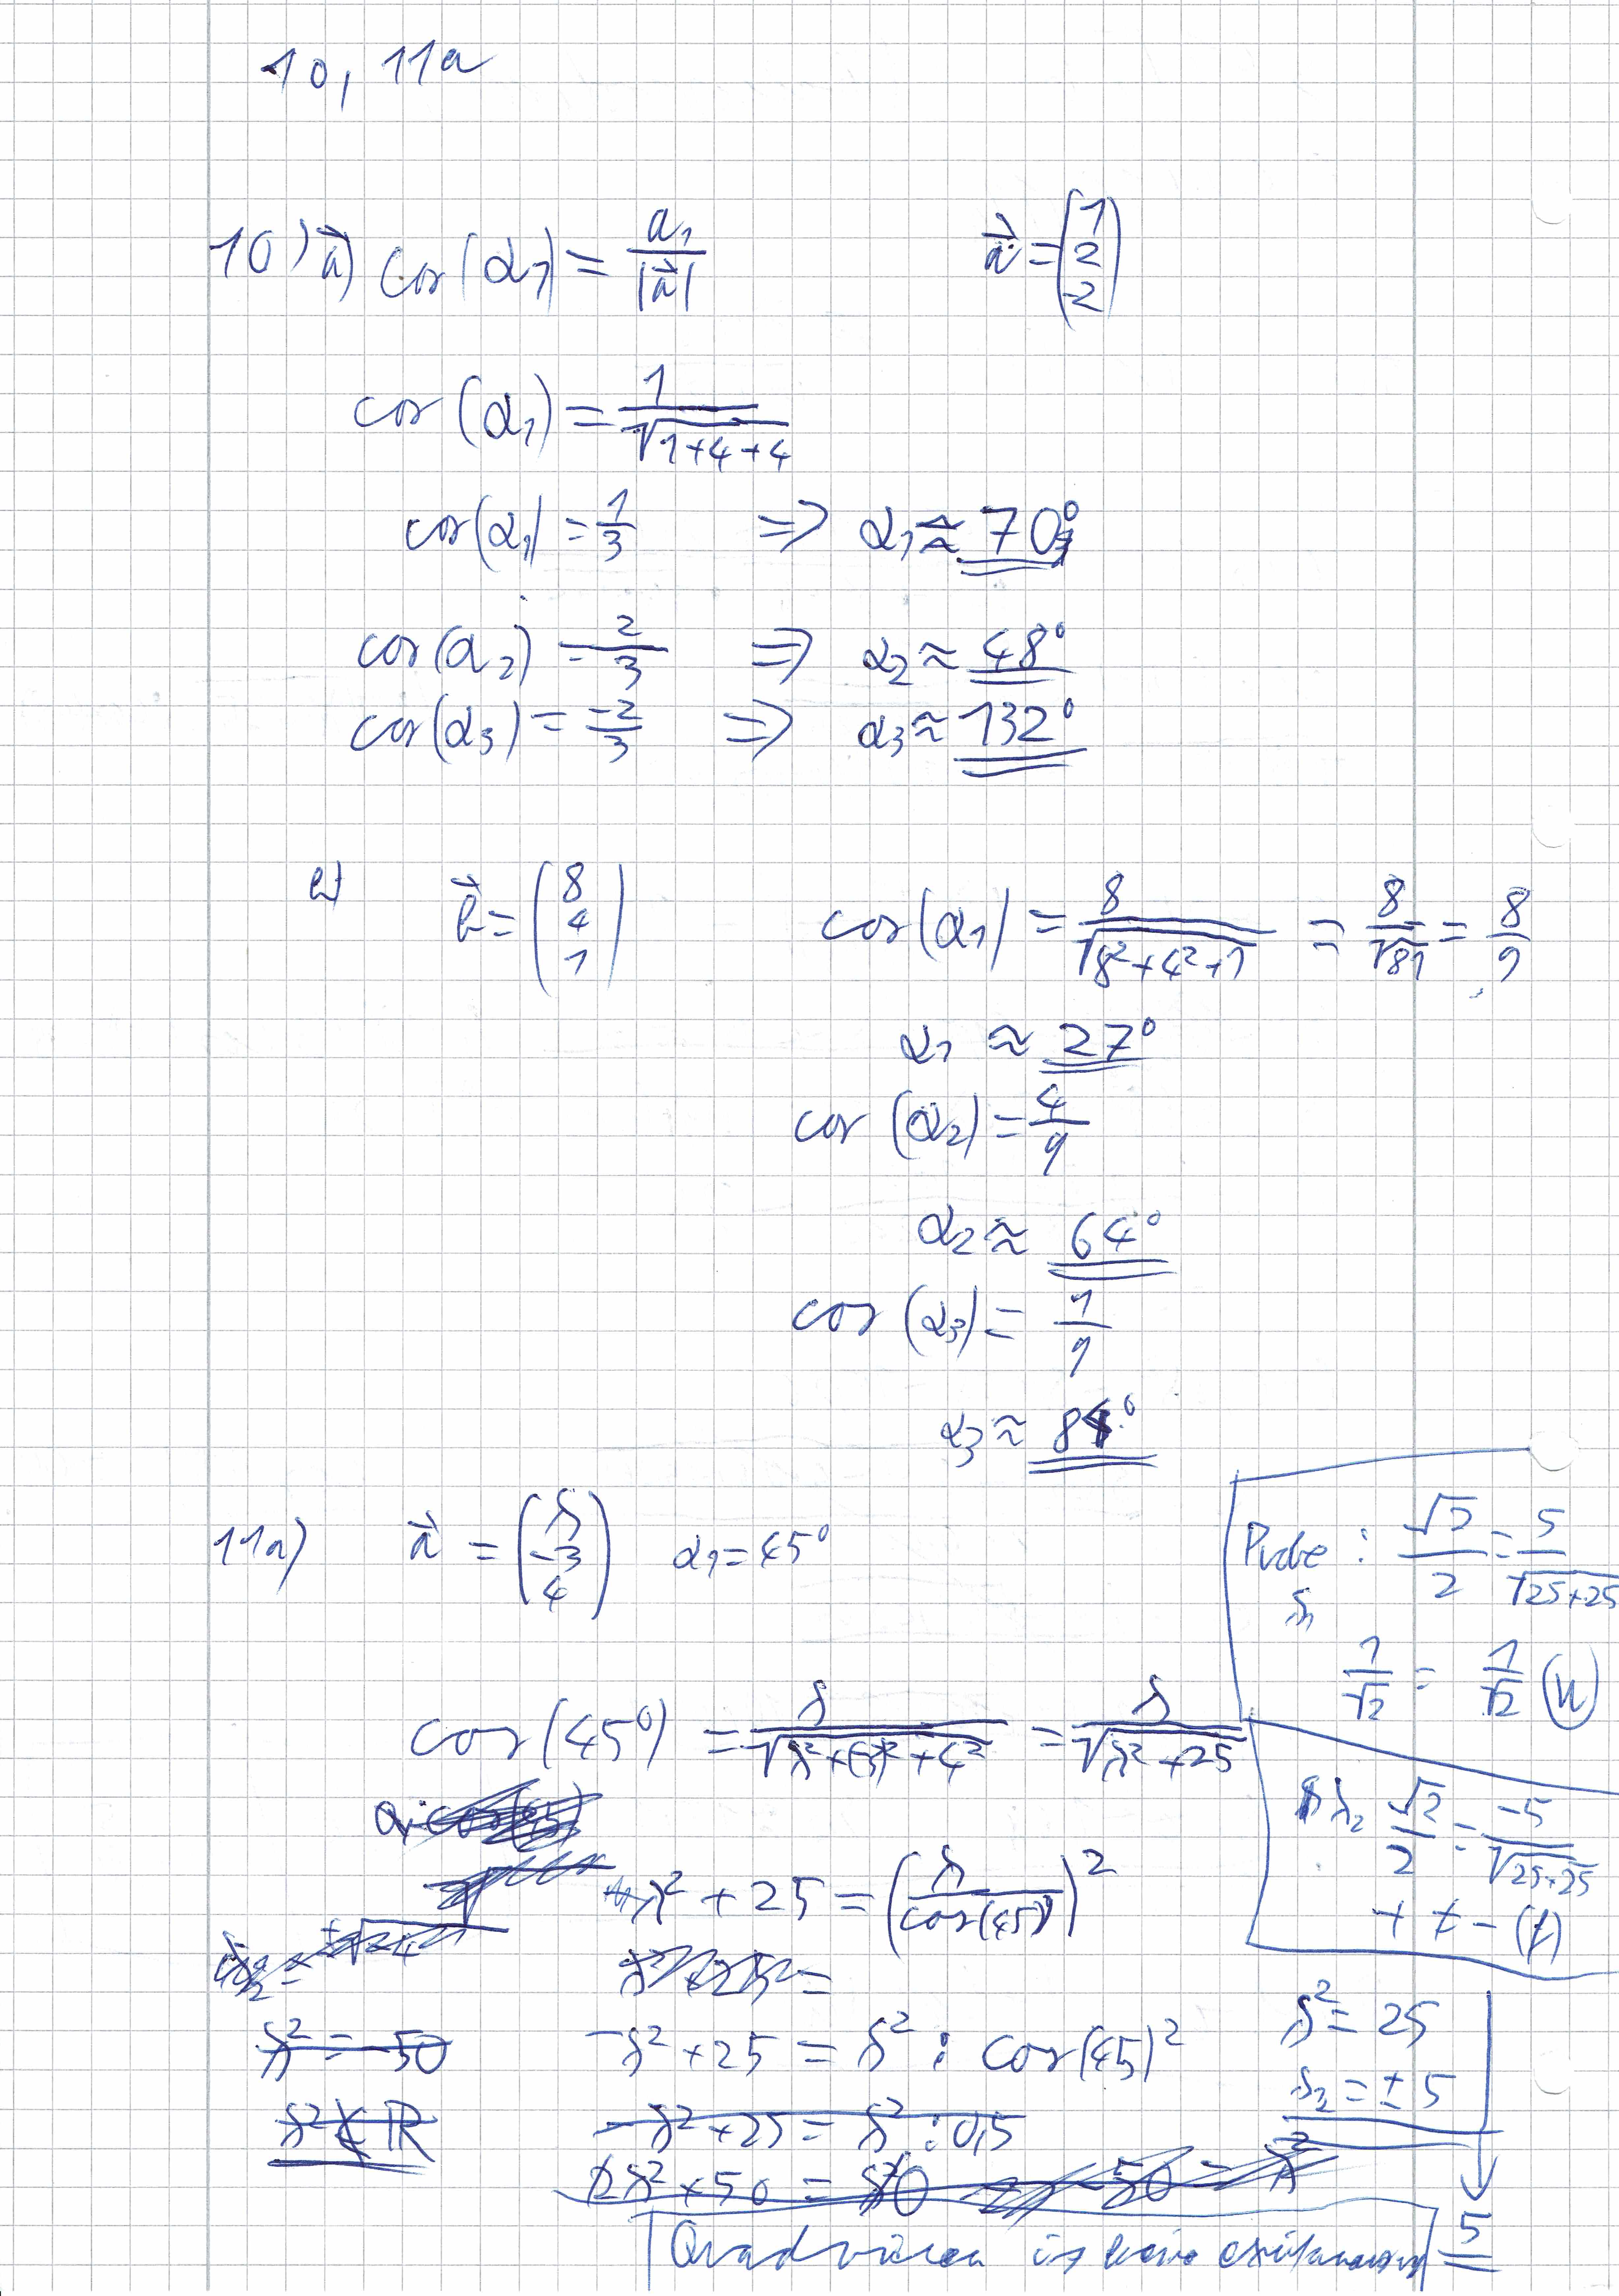 10, 11a
10) a) cos(α₁) = a₁ / |a⃗|    a⃗ = (1 2 -2)
cos(α₁) = 1 / √(1+4+4)
cos(α₁) = 1/3 ⇒ α₁ ≈ 70°
cos(α₂) = 2/3 ⇒ α₂ ≈ 48°
cos(α₃) = -2/3 ⇒ α₃ ≈ 132°
b⃗ = (8 4 1)    cos(α₁) = 8 / √(8²+4²+1) = 8/√81 = 8/9
α₁ ≈ 27°
cos(α₂) = 4/9
α₂ ≈ 64°
cos(α₃) = 1/9
α₃ ≈ 84°
11a) a⃗ = (λ -3 4)    α₁ = 45°
cos(45°) = λ / √(λ²+(-3)²+4²) = λ / √(λ²+25)
λ² + 25 = (λ / cos(45))²
λ² + 25 = λ² : cos(45)²
λ² = -50
-λ² + 25 = λ² : 0,5
λ² ∉ ℝ
2λ² + 50 = λ²
Probe: √2/2 = 5/√(25+25)
λ₁
1/√2 = 1/√2 (w)
λ₂ √2/2 = -5/√(25+25)
+ ≠ - (f)
λ² = 25
λ₂ = ± 5
Quadrieren ist keine
= 5